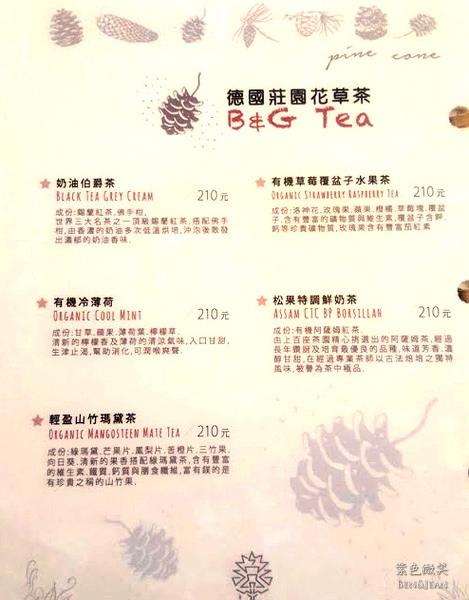 pine cone
德國莊園花草茶
B&G Tea
奶油伯爵茶
Black Tea Grey Cream 210元
成份:錫蘭紅茶,佛手柑,
世界三大名茶之一頂級錫蘭紅茶,搭配佛手
柑,由香濃的奶油多次低溫烘培,沖泡後散發
出濃郁的奶油香味.
有機草莓覆盆子水果茶
Organic Strawberry Raspberry Tea 210元
成份:洛神花,玫瑰果,蘋果,橙橘,草莓塊,覆盆
子,含有豐富的礦物質與維生素,覆盆子含鉀
鈣等珍貴礦物質,玫瑰果含有豐富茄紅素
有機冷薄荷
Organic Cool Mint 210元
成份:甘草,蘋果,薄荷葉,檸檬草.
清新的檸檬香及薄荷的清涼氣味,入口甘甜,
生津止渴,幫助消化,可潤喉爽聲.
松果特調鮮奶茶
Assam CTC BP Borsillah 210元
成份:有機阿薩姆紅茶.
由上百座茶園精心挑選出的阿薩姆茶,經過
長年鑽研及培育最優良的品種,味道芳香,濃
醇甘甜,在經過專業茶師以古法焙培之獨特
風味,被譽為茶中極品.
輕盈山竹瑪黛茶
Organic Mangosteen Mate Tea 210元
成份:綠瑪黛,芒果片,鳳梨片,苦橙片,三竹果,
向日葵.清新的果香搭配綠瑪黛茶,含有豐富
的維生素.鐵質.鈣質與膳食纖維,富有錢的是
有珍貴之稱的山竹果.
紫色微笑
Ben&Jean